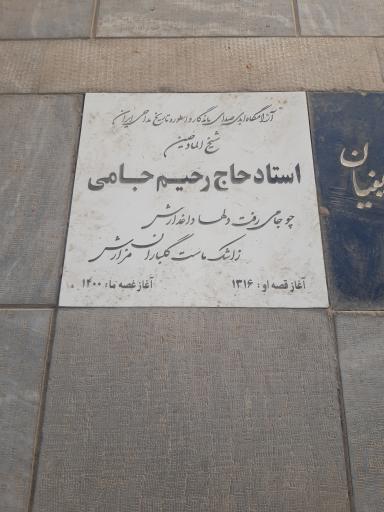 آرامگاه ابدی صدای ماندگار و اسطوره تاریخ مداحی ایران
شیخ المادحین
استاد حاج رحیم جامی
چو جامی رفت و دلها داغدارش
ز اشک ماست گلباران مزارش
آغاز قصه او: ۱۳۱۶ آغاز غصه ما: ۱۴۰۰